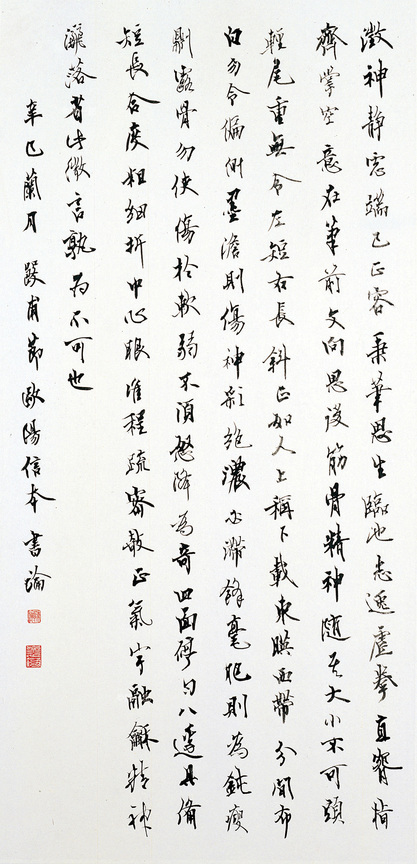 澂神静慮端己正容秉筆思生臨池志逸虛拳直指
齊掌空意在筆前文向思後筋骨精神隨其大小不可頭
輕尾重無令左短右長斜正如人上稱下載東映西帶分間布
白勿令偏側墨澹則傷神彩絶濃必滯鋒毫肥則為鈍瘦
則露骨勿使傷於軟弱不須怒降為奇四面停勻八邊具備
短長合度粗細折中心眼準程疏密欹正氣宇融龢精神
灑落省此微言孰為不可也
辛巳蘭月甫節歐陽信本書論